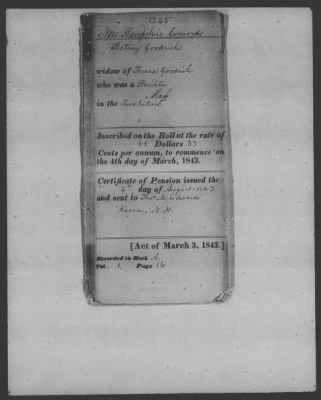 1365
New Hampshire Concord
Betsey Goodrich
widow of Thomas Goodrich
who was a Private
Mass
in the Revolution
Inscribed on the Roll at the rate of
Dollars 33
Cents per annum, to commence on
the 4th day of March, 1843.
Certificate of Pension issued the
4th day of August 1843
and sent to Thos M. Edwards
Keene, N.H.
[Act of March 3, 1843.]
Recorded in Book A.
Vol. 1. Page 16